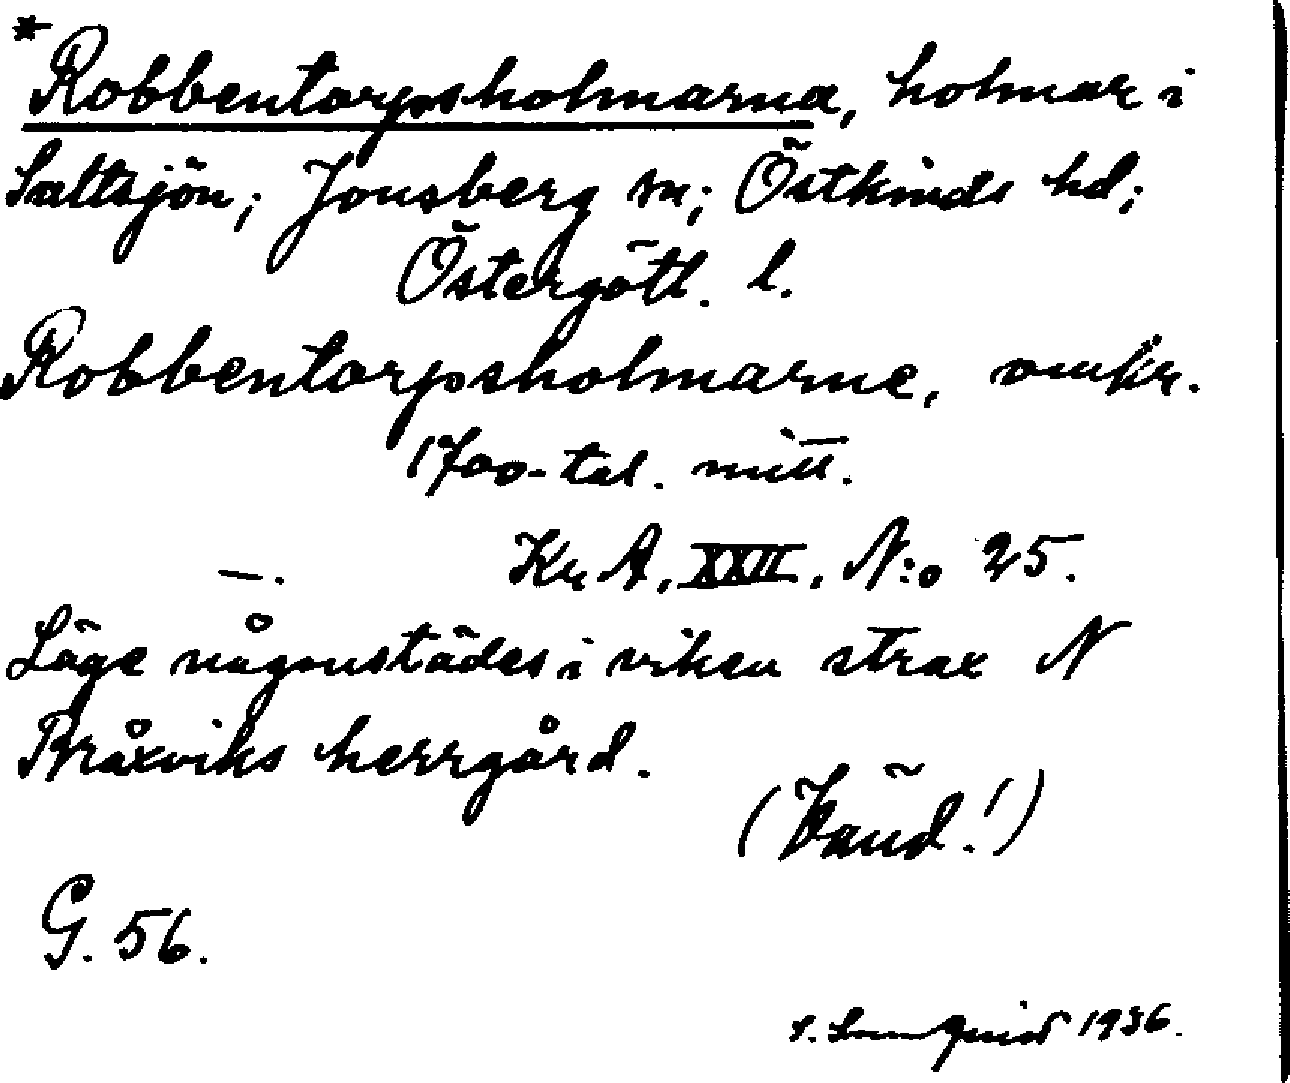 *Robbentorpsholmarna, holmar i
Saltsjön; Jonsberg sn; Östkinds hd;
Östergötl. l.
Robbentorpsholmarne, omkr.
1700-tal. mitt.
—. Kr A, XXII, N:o 25.
Läge någonstädes i viken strax N
Bråxviks herrgård.
(Vänd!)
G. 56.
1936.